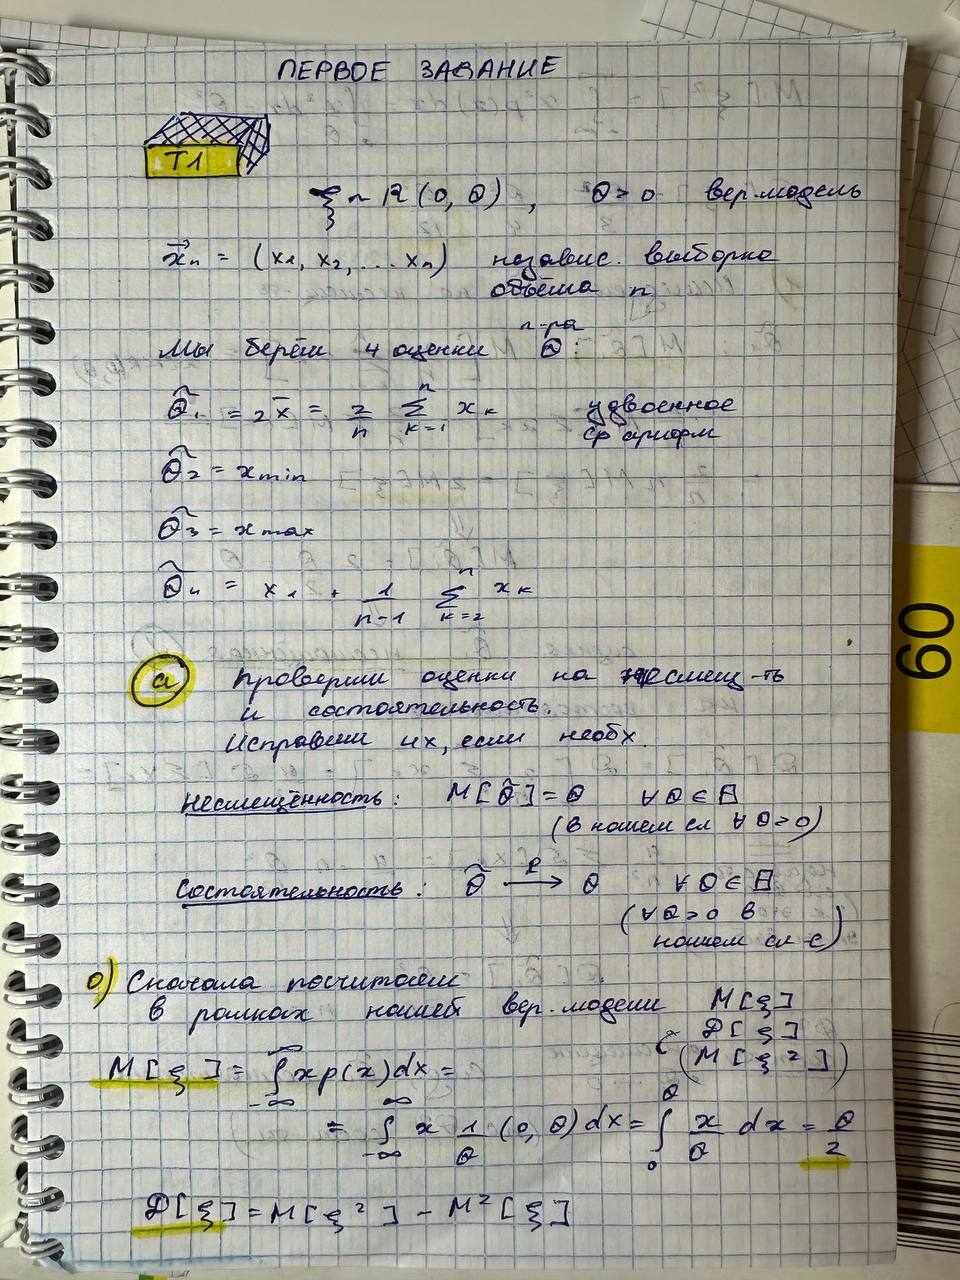 ПЕРВОЕ ЗАДАНИЕ
T1
ξ ~ R(0, θ), θ > 0 вер. модель
x⃗n = (x1, x2, ... xn) независ. выборка
объёма n
Мы берём 4 оценки п-ра θ:
θ̃1 = 2x̄ = 2/n ∑_{k=1}^{n} xk удвоенное
ср арифм
θ̃2 = xmin
θ̃3 = xmax
θ̃4 = x1 + 1/(n-1) ∑_{k=2}^{n} xk
а) Проверим оценки на несмещ-ть
и состоятельность.
Исправим их, если необх.
Несмещённость: M[θ̃] = θ ∀θ ∈ Θ
(в нашем сл ∀θ>0)
Состоятельность: θ̃ —P→ θ ∀θ ∈ Θ
(∀θ>0 в
нашем сл-е)
0) Сначала посчитаем
в рамках нашей вер. модели M[ξ]
D[ξ]
(M[ξ²])
M[ξ] = ∫_{-∞}^{∞} x p(x) dx =
= ∫_{-∞}^{∞} x 1/θ (0, θ) dx = ∫_{0}^{θ} x/θ dx = θ/2
D[ξ] = M[ξ²] - M²[ξ]
60